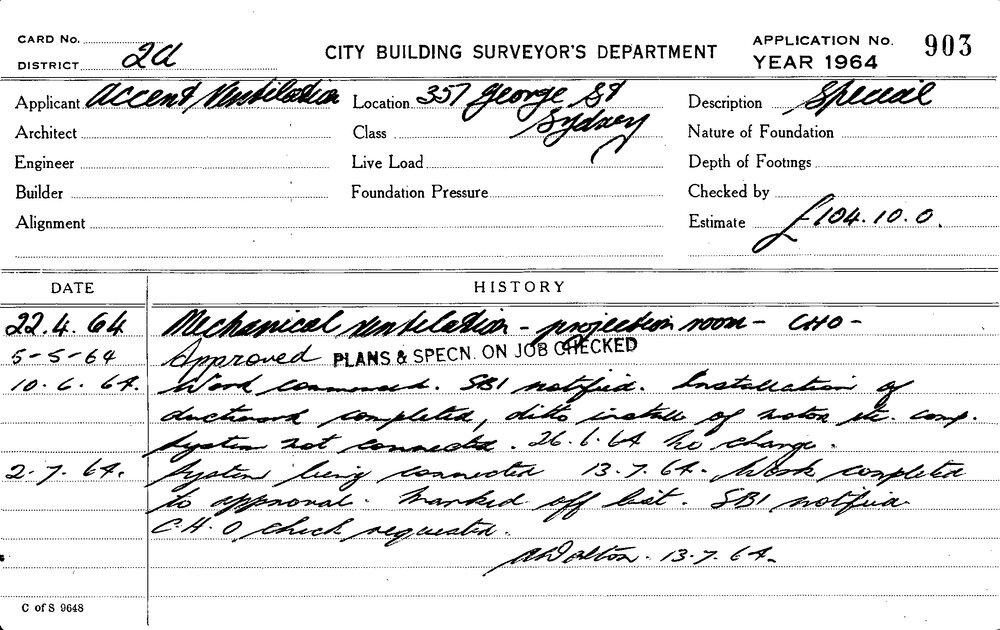 CARD No.
DISTRICT 2a
CITY BUILDING SURVEYOR'S DEPARTMENT
APPLICATION No. 903
YEAR 1964
Applicant Accent Ventilation
Location 357 George St Sydney
Description Special
Architect
Class
Nature of Foundation
Engineer
Live Load
Depth of Footings
Builder
Foundation Pressure
Checked by
Alignment
Estimate £104.10.0.
DATE HISTORY
22.4.64 Mechanical Ventilation - projection room - CHO -
5-5-64 Approved PLANS & SPECN. ON JOB CHECKED
10.6.64. Work commenced. SBI notified. Installation of
ductwork completed, ditto install of motor etc. comp.
System not connected. 26.6.64 No change.
2.7.64. System being connected 13.7.64. Work completed
to approval. Marked off list. SBI notified
C.H.O check requested.
13.7.64.
C of S 9648